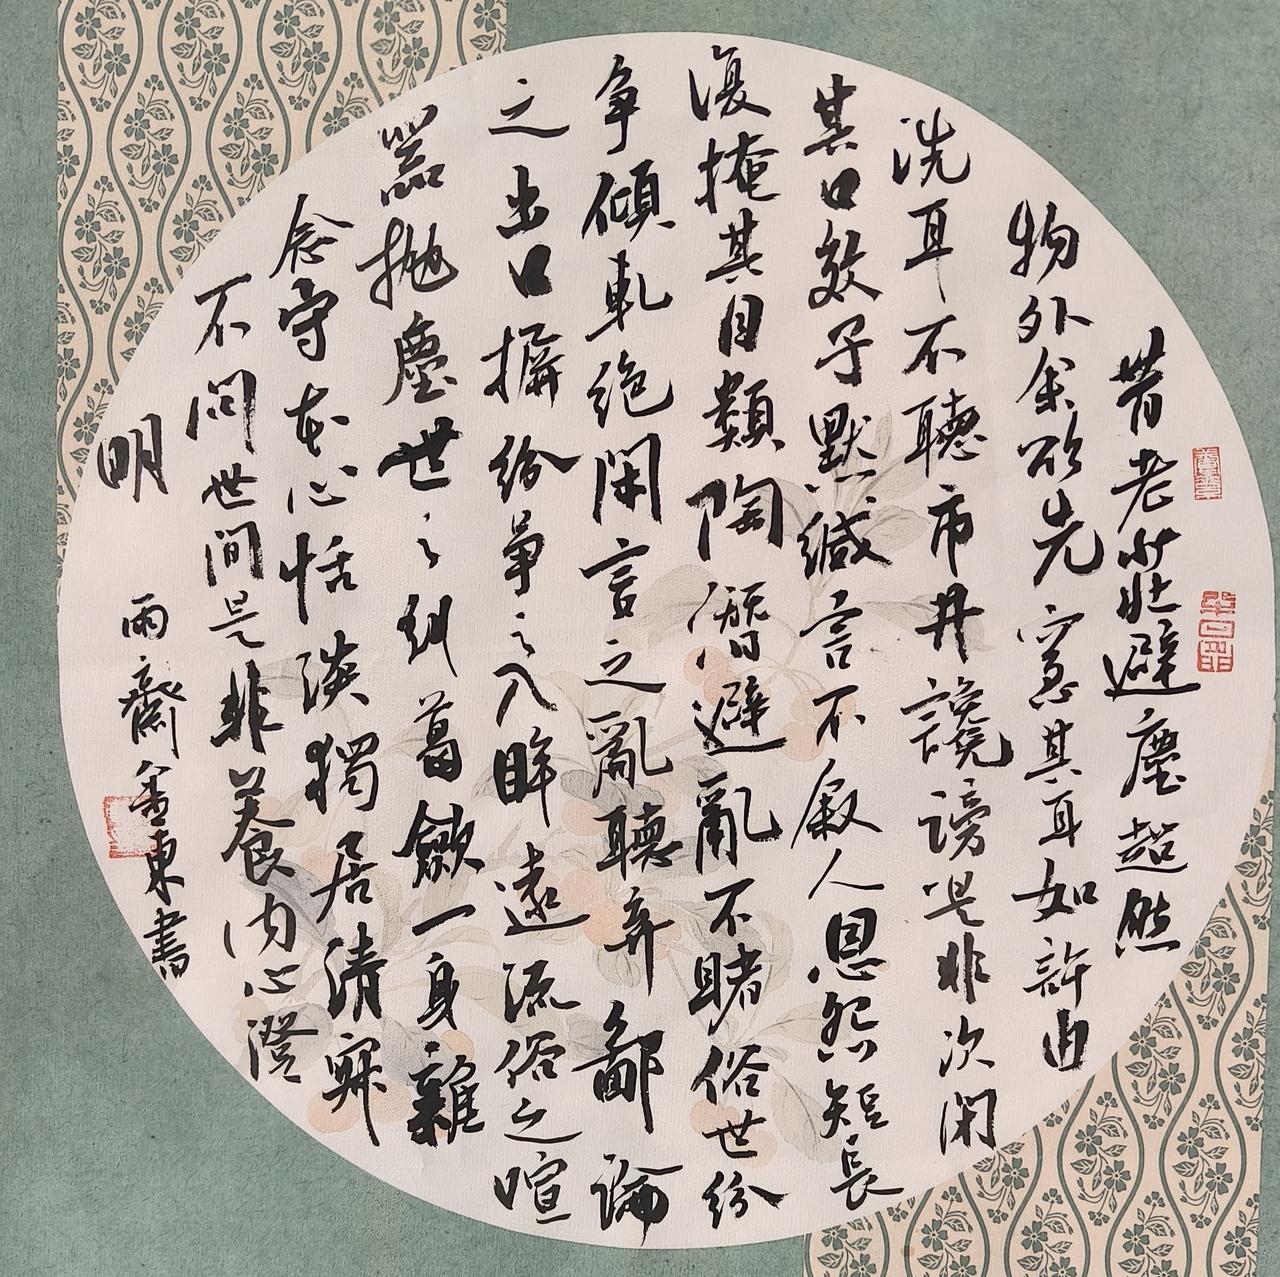 昔老莊避塵超然
物外余欲先窒其耳如許由
洗耳不聽市井讒謗是非次閑
其口效子默緘言不敘人恩怨短長
復掩其目類陶潛避亂不睹俗世紛
爭傾軋絶閑言之亂聽弃鄙論
之出口摒紛爭之入眸遠流俗之喧
囂抛塵世之糾葛斂一身雜
念守本心恬淡獨居清寂
不問世間是非養内心澄
明
雨齋金東書